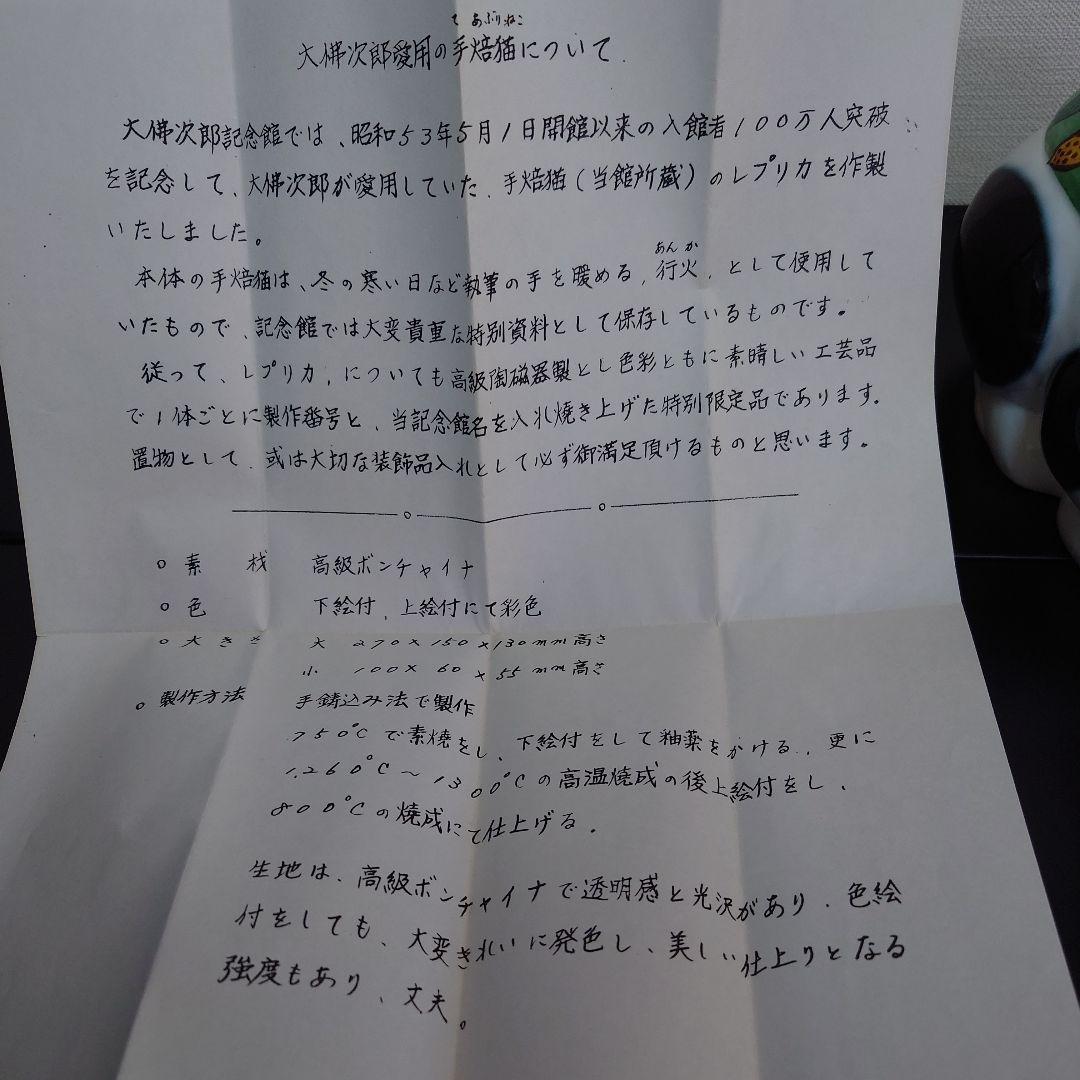 てあぶりねこ
大佛次郎愛用の手焙猫について
大佛次郎記念館では、昭和53年5月1日開館以来の入館者100万人突破
を記念して、大佛次郎が愛用していた、手焙猫(当館所蔵)のレプリカを作製
いたしました。
あんか
本体の手焙猫は、冬の寒い日など執筆の手を暖める、行火、として使用して
いたもので、記念館では大変貴重な特別資料として保存しているものです。
従って、レプリカ、についても高級陶磁器製とし色彩ともに素晴しい工芸品
で1体ごとに製作番号と、当記念館名を入れ焼き上げた特別限定品であります。
置物として、或は大切な装飾品入れとして必ず御満足頂けるものと思います。
○素 材 高級ボンチャイナ
○色 下絵付、上絵付にて彩色
○大きさ 大 270×150×130mm高さ
小 100×60×55mm高さ
○製作方法 手鋳込み法で製作
750℃で素焼をし、下絵付をして釉薬をかける、更に
1,260℃〜1300℃の高温焼成の後上絵付をし、
800℃の焼成にて仕上げる。
生地は、高級ボンチャイナで透明感と光沢があり、色絵
付をしても、大変きれいに発色し、美しい仕上りとなる
強度もあり、丈夫。